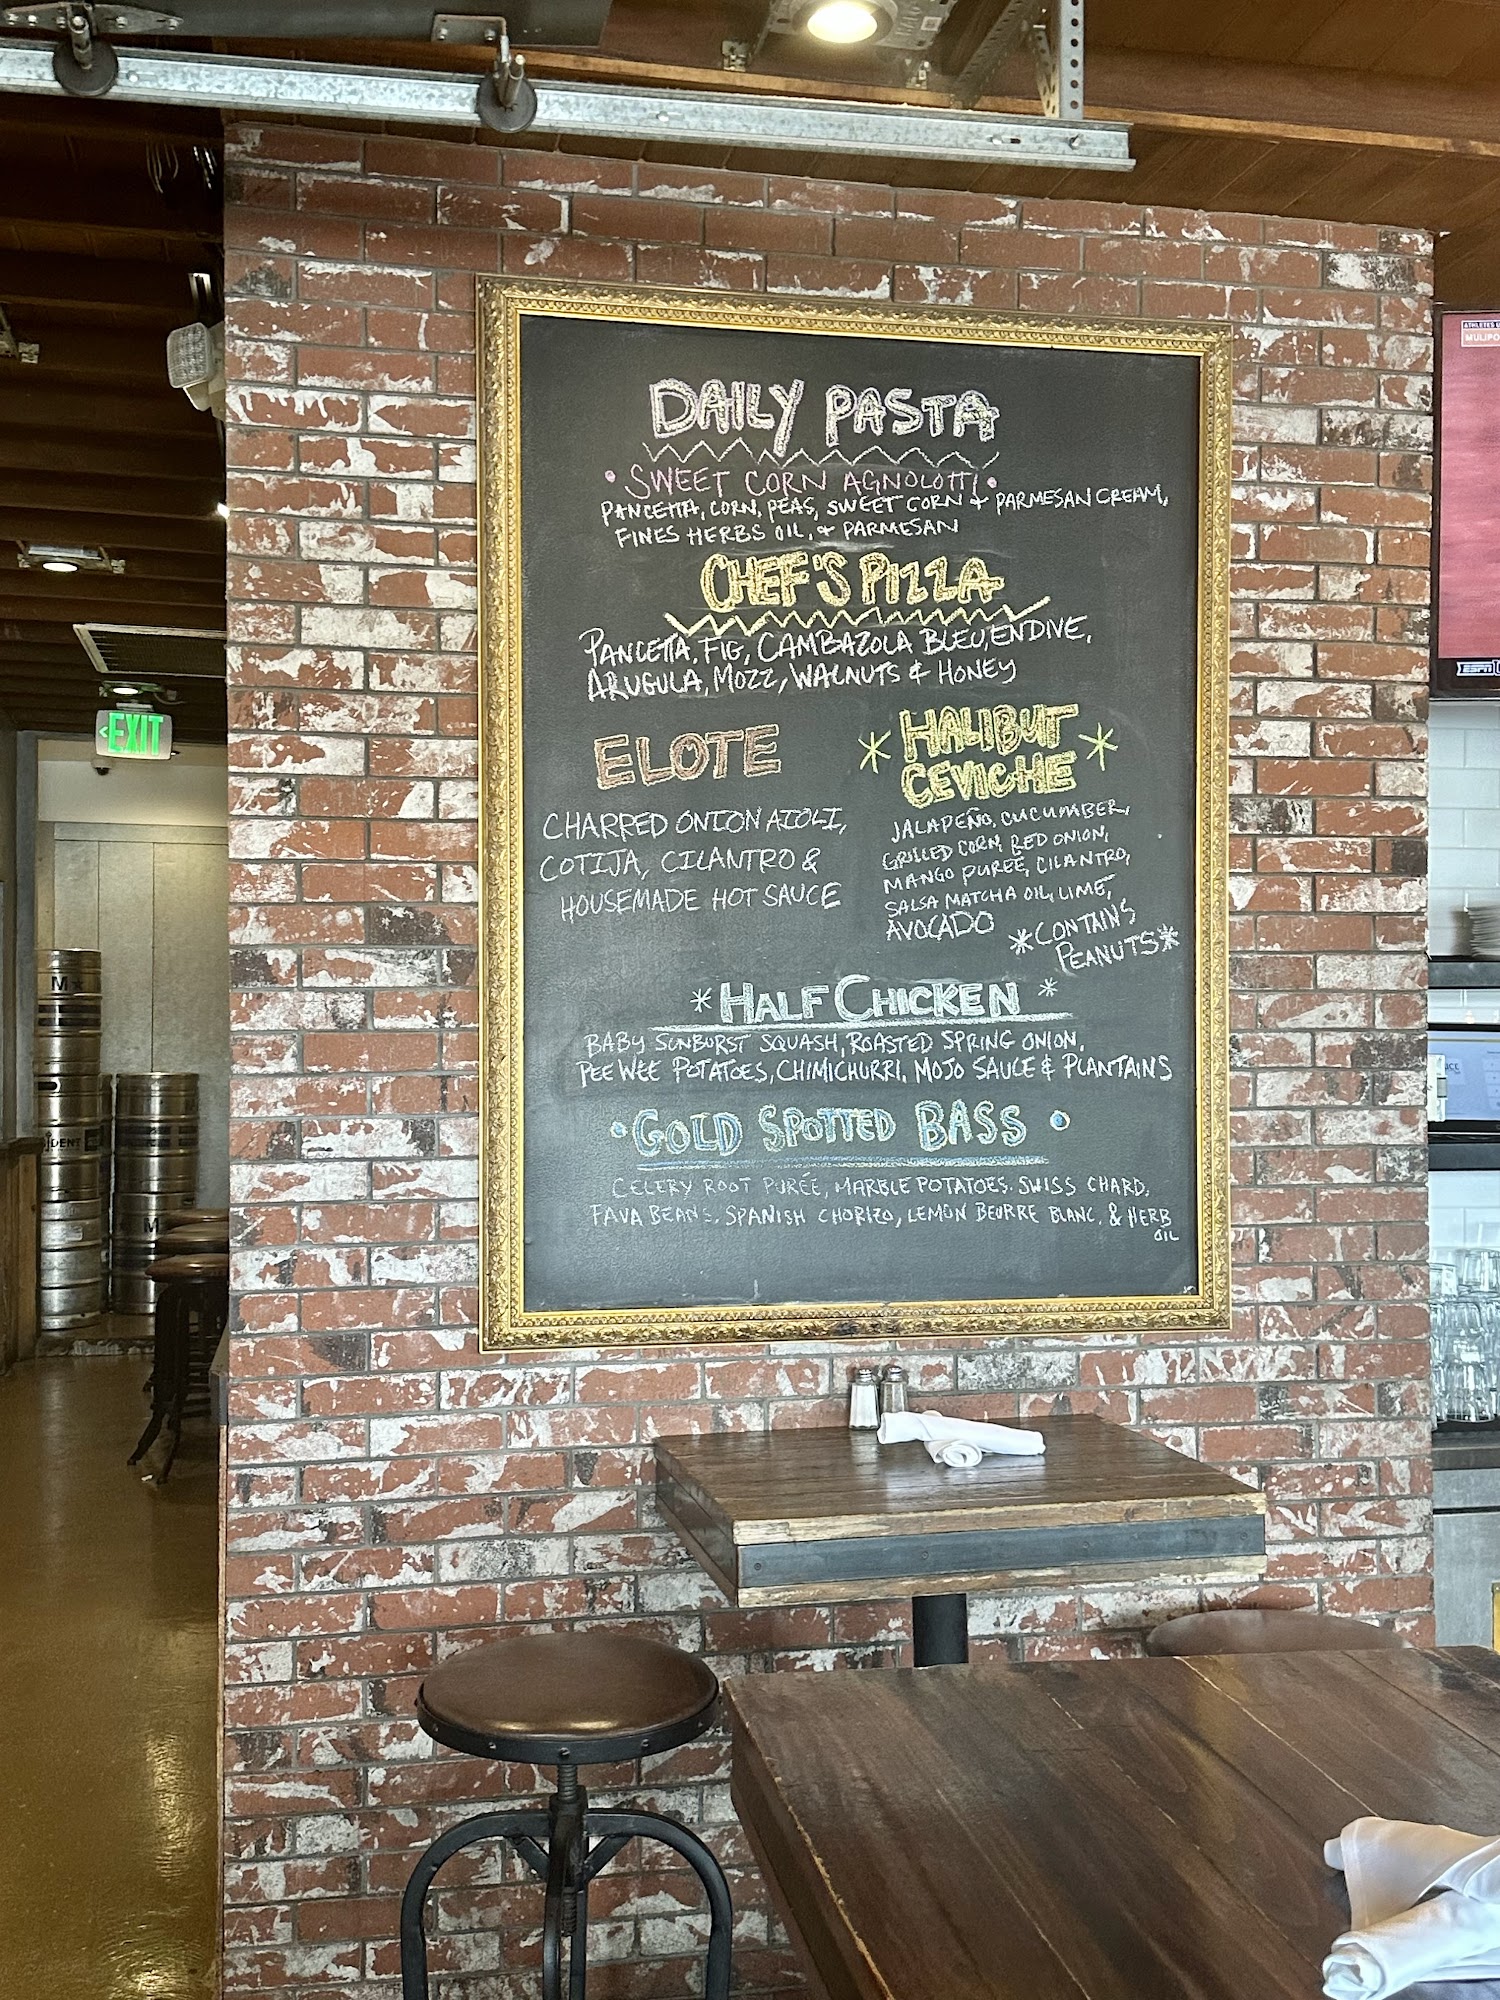 DAILY PASTA
• SWEET CORN AGNOLOTTI •
PANCETTA, CORN, PEAS, SWEET CORN + PARMESAN CREAM,
FINES HERBS OIL, + PARMESAN
CHEF'S PIZZA
PANCETTA, FIG, CAMBAZOLA BLEU, ENDIVE,
ARUGULA, MOZZ, WALNUTS & HONEY
ELOTE
CHARRED ONION AIOLI,
COTIJA, CILANTRO &
HOUSEMADE HOT SAUCE
*HALIBUT*
CEVICHE
JALAPEÑO, CUCUMBER,
GRILLED CORN, RED ONION,
MANGO PURÉE, CILANTRO,
SALSA MATCHA OIL, LIME,
AVOCADO
*CONTAINS
PEANUTS*
*HALF CHICKEN*
BABY SUNBURST SQUASH, ROASTED SPRING ONION,
PEE WEE POTATOES, CHIMICHURRI, MOJO SAUCE & PLANTAINS
• GOLD SPOTTED BASS •
CELERY ROOT PURÉE, MARBLE POTATOES, SWISS CHARD,
FAVA BEANS, SPANISH CHORIZO, LEMON BEURRE BLANC, & HERB
OIL
EXIT
M
DENT
M
ESPN